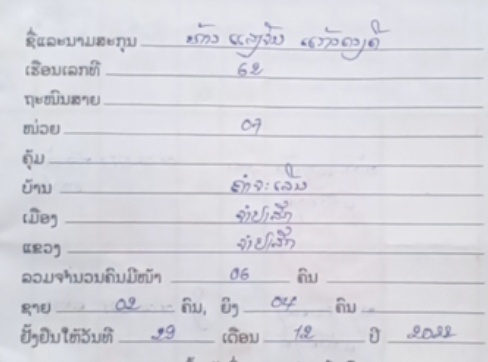 ຊື່ແລະນາມສະກຸນ ທ້າວ ແສງຈັນ ແກ້ວດວງດີ
ເຮືອນເລກທີ 62
ຖະໜົນສາຍ
ໜ່ວຍ 07
ຄຸ້ມ
ບ້ານ ຄຳຈະເລີນ
ເມືອງ ຈຳປາສັກ
ແຂວງ ຈຳປາສັກ
ລວມຈຳນວນຄົນມີໜ້າ 06 ຄົນ
ຊາຍ 02 ຄົນ, ຍິງ 04 ຄົນ
ຢັ້ງຢືນໃຫ້ວັນທີ 29 ເດືອນ 12 ປີ 2022